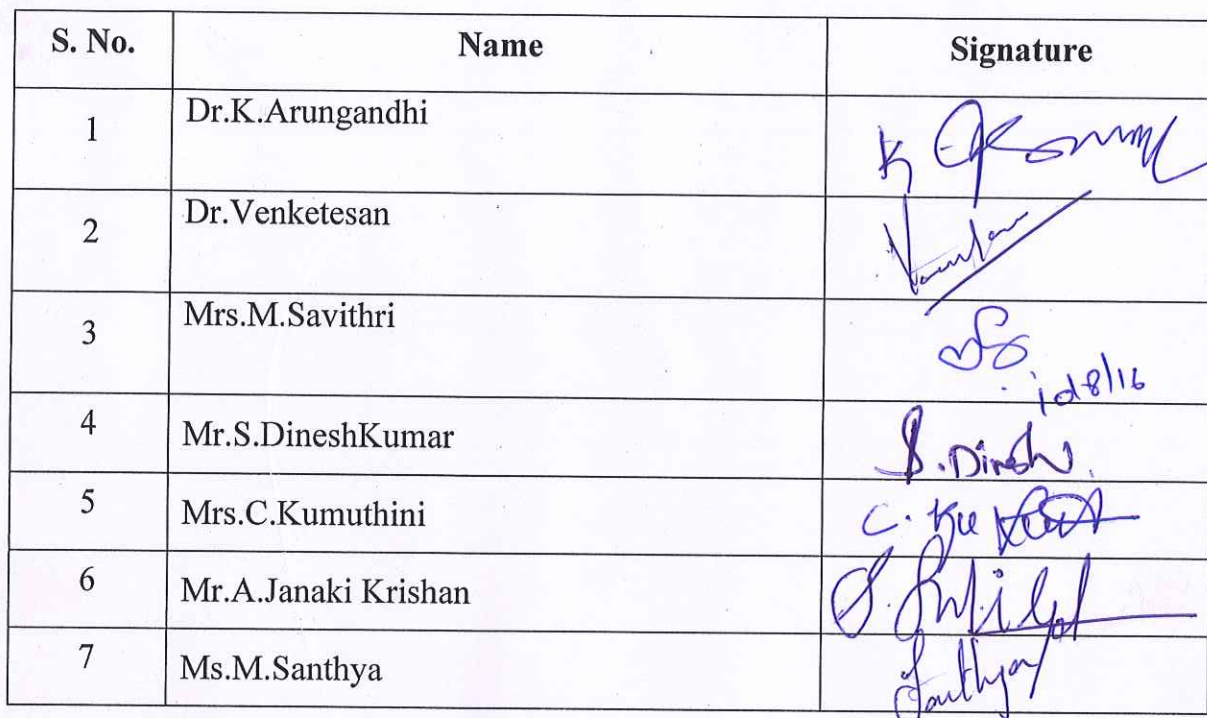 S. No. Name Signature
1 Dr.K.Arungandhi
2 Dr.Venketesan
3 Mrs.M.Savithri
4 Mr.S.DineshKumar S.Dinesh
5 Mrs.C.Kumuthini C. Ku
6 Mr.A.Janaki Krishan
7 Ms.M.Santhya Santhya